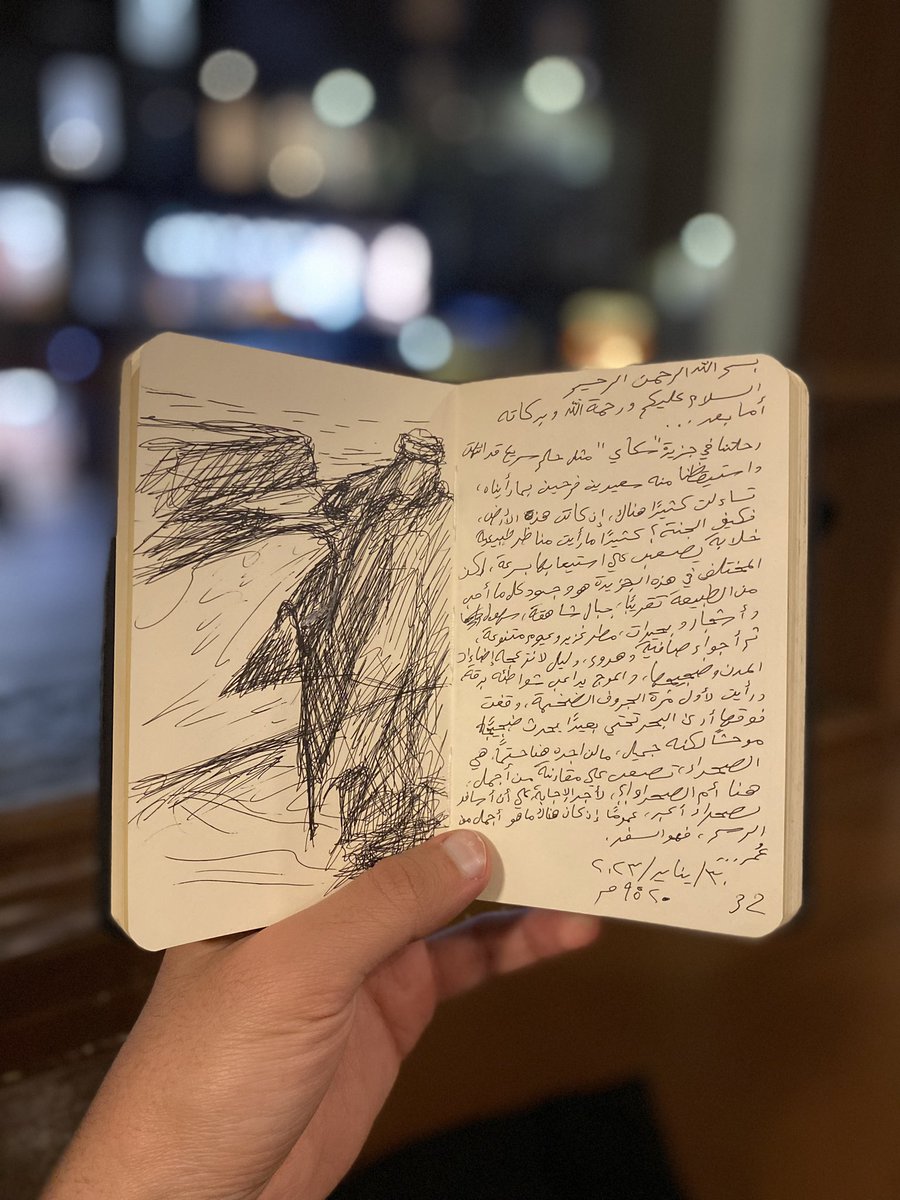 بسم الله الرحمن الرحيم
السلام عليكم ورحمة الله وبركاته
أما بعد...
رحلتنا في جزيرة "سكاي" مثل حلم سريع قد انطلق
واستيقظنا منه سعيدين فرحين بما رأيناه،
تساءلت كثيرًا هناك، إن كانت هذه الأرض،
فكيف الجنة؟ كثيرًا ما رأيت مناظر طبيعية
خلابة يصعب علي استيعابها بسرعة، لكن
المختلف في هذه الجزيرة هو وجود كل ما أحب
من الطبيعة تقريبًا، جبال شاهقة، سهول
وأشجار وبحيرات، مطر غزير وغيوم متنوعة،
ثم أجواء صافية وهدوء، وليل لا تزعجه إضاءات
المدن وضجيجها، والموج يداعب شواطئه برقة
ورأيت لأول مرة الجروف الضخمة، وقفت
فوقها أرى البحر تحتي بعيدًا يحدث ضجيجًا
موحشًا لكنه جميل، ما لن أجده هنا حتمًا، هي
الصحراء، تصعب علي مقارنة من أجمل،
هنا أم الصحراء؟، لأجد الإجابة علي أن أسافر
لصحراء أكبر، عمومًا إن كان هناك ما هو أجمل من
الرسم، فهو السفر.
عُمر..
٣٠/يناير/٢٠٢٣
٩:٥٢٠ م
32